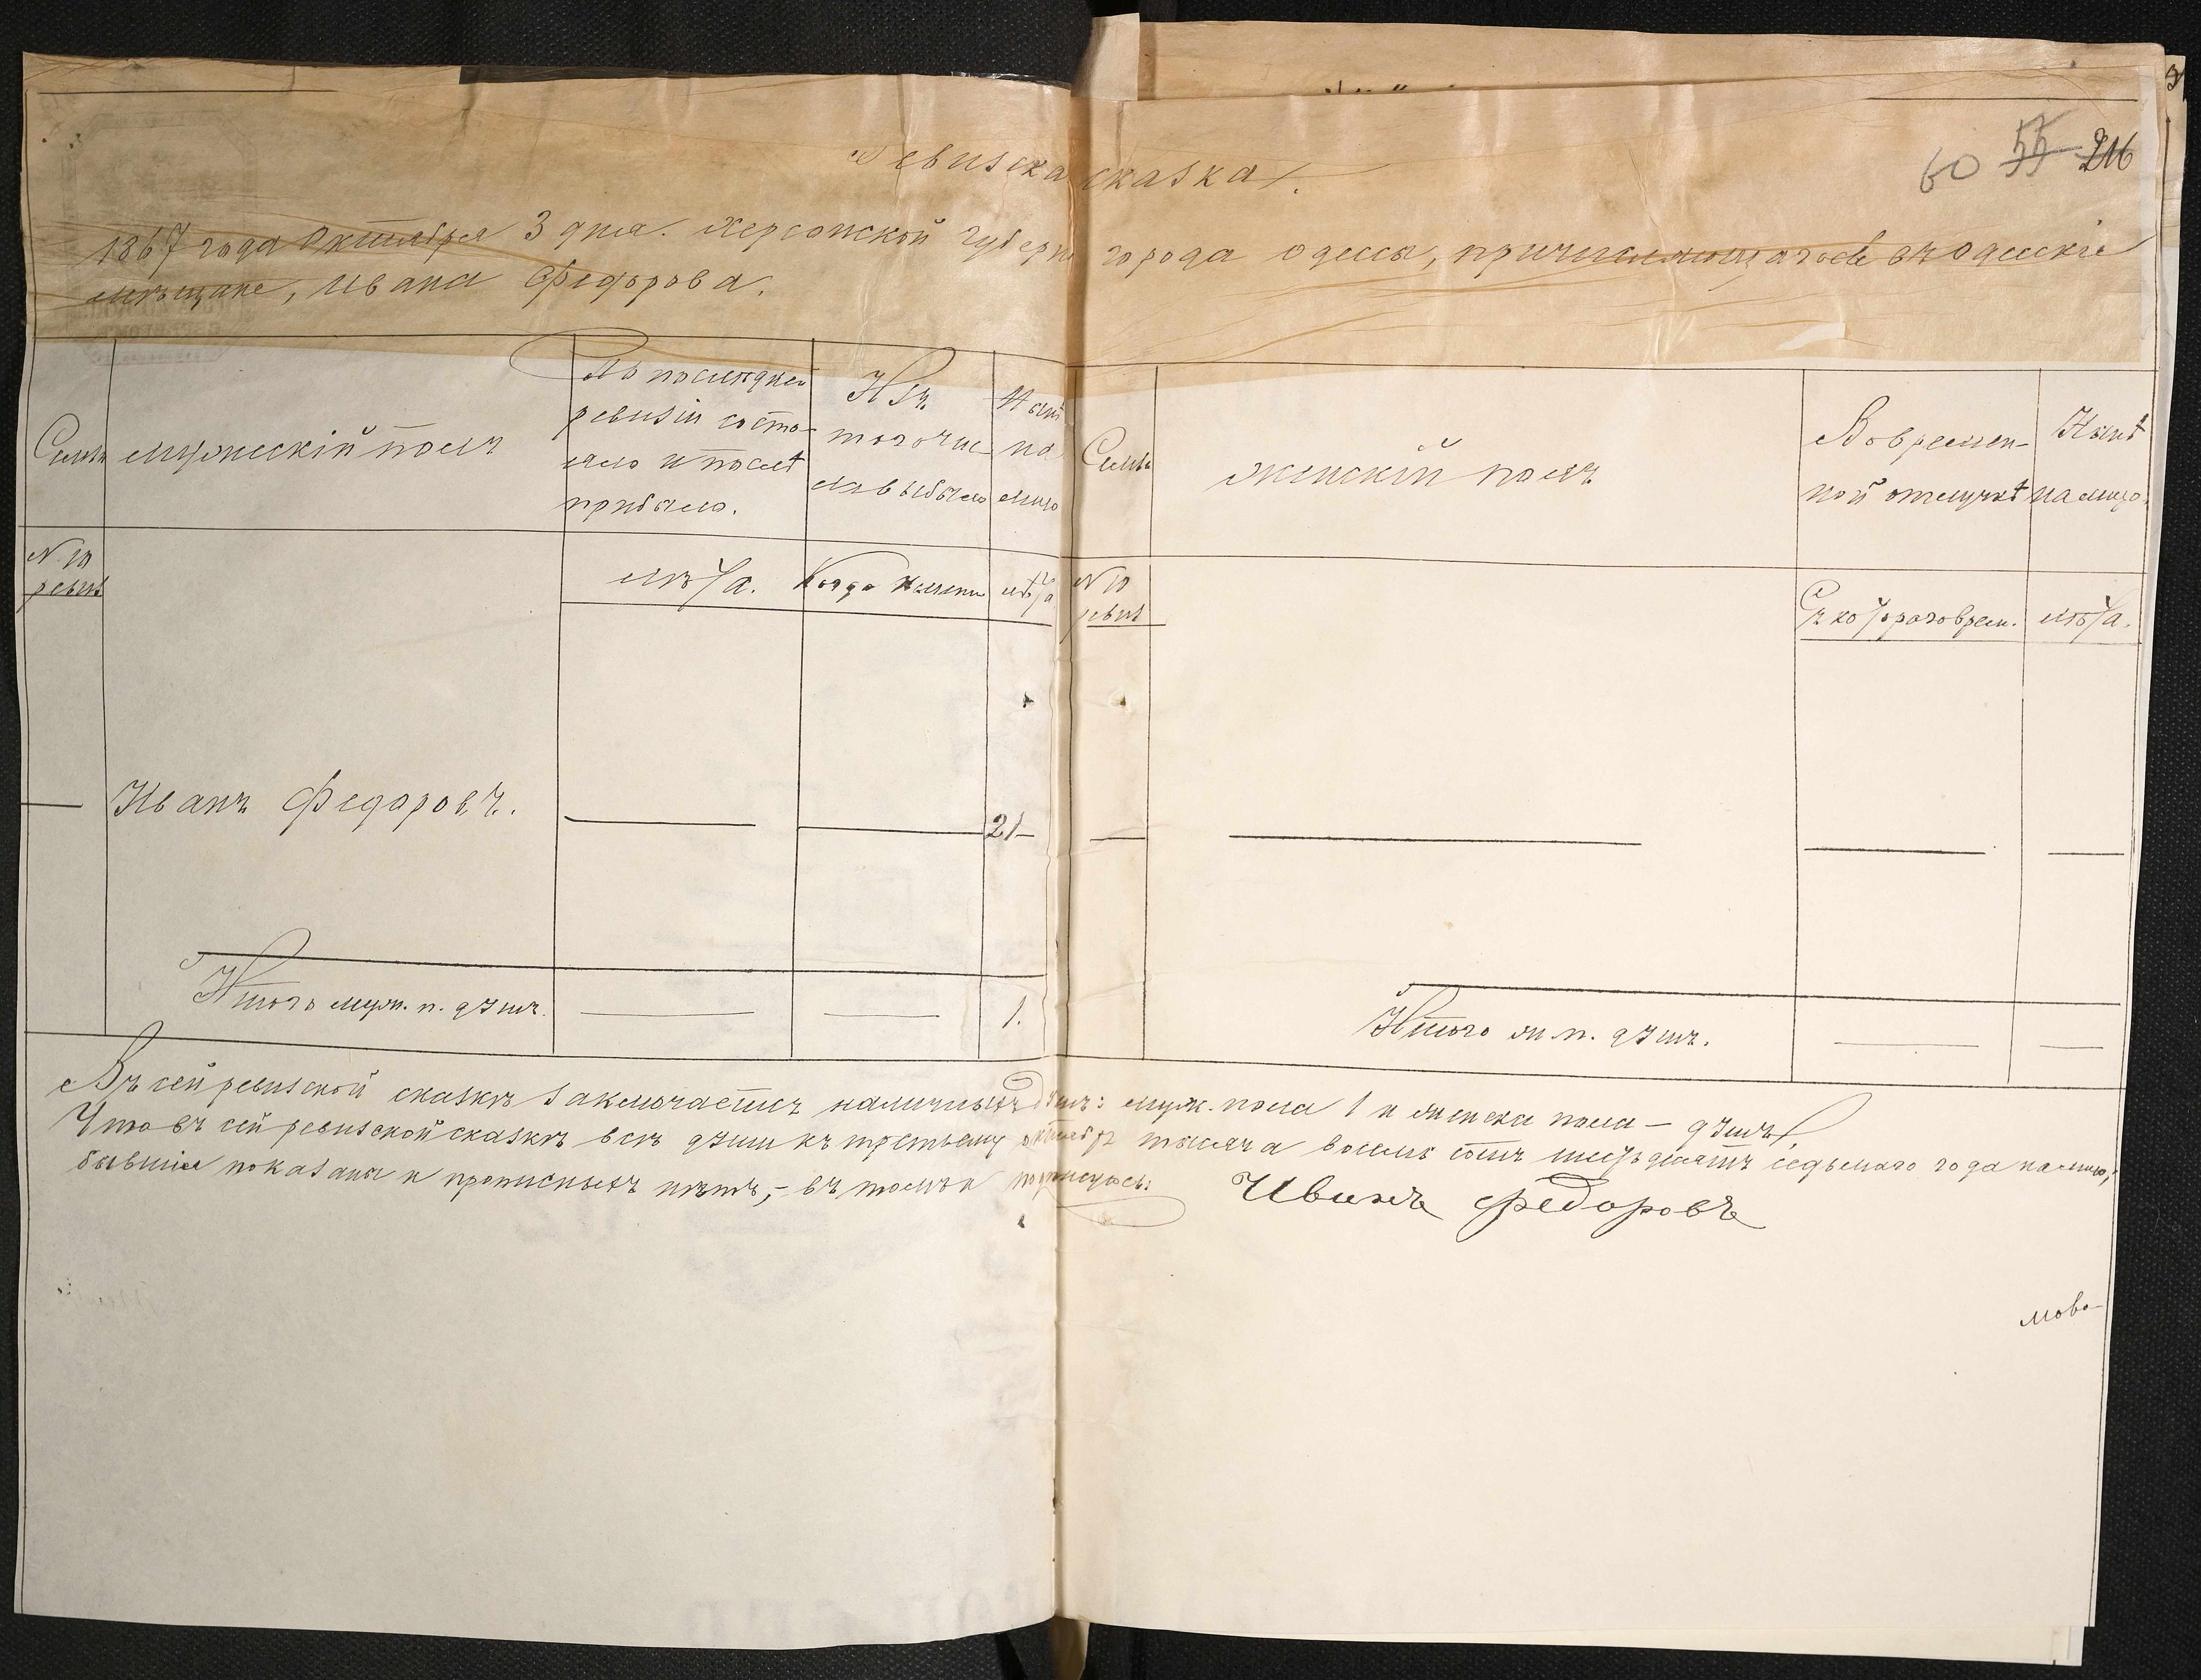 Ревизска сказка.
60 55 216
1867 года Октября 3 дня. Херсонской губерн города одессы, причисляющагося въ одесскіе
мѣщане, Ивана Федорова.
Семьи
мужескій полъ
По последней
ревизіи состо-
яло и послѣ
прибыло.
Изъ
того чис-
ла выбыло
Нынѣ
на
лицо
Семьи
женскій полъ
Во времен-
ной отлучкѣ
Нынѣ
на лицо.
№ 10
ревиз
лѣта.
Когда именно
лѣта
№ 10
ревиз
Съ котораго врем.
лѣта.
— Иванъ Федоровъ. — — 21 — — — —
Итого муж. п. душъ. — — 1.
Итого ж. п. душъ. — —
Въ сей ревизской сказкѣ заключается наличныхъ душъ: муж. пола 1 и женска пола — душъ.
Что въ сей ревизской сказкѣ всѣ души къ третьему октября тысяча восемь сотъ шестьдесятъ седьмаго года на лицо,
бывшіе показаны и прописныхъ нѣтъ, - въ томъ и подписуюсь:
Иванъ Федоровъ
мово-